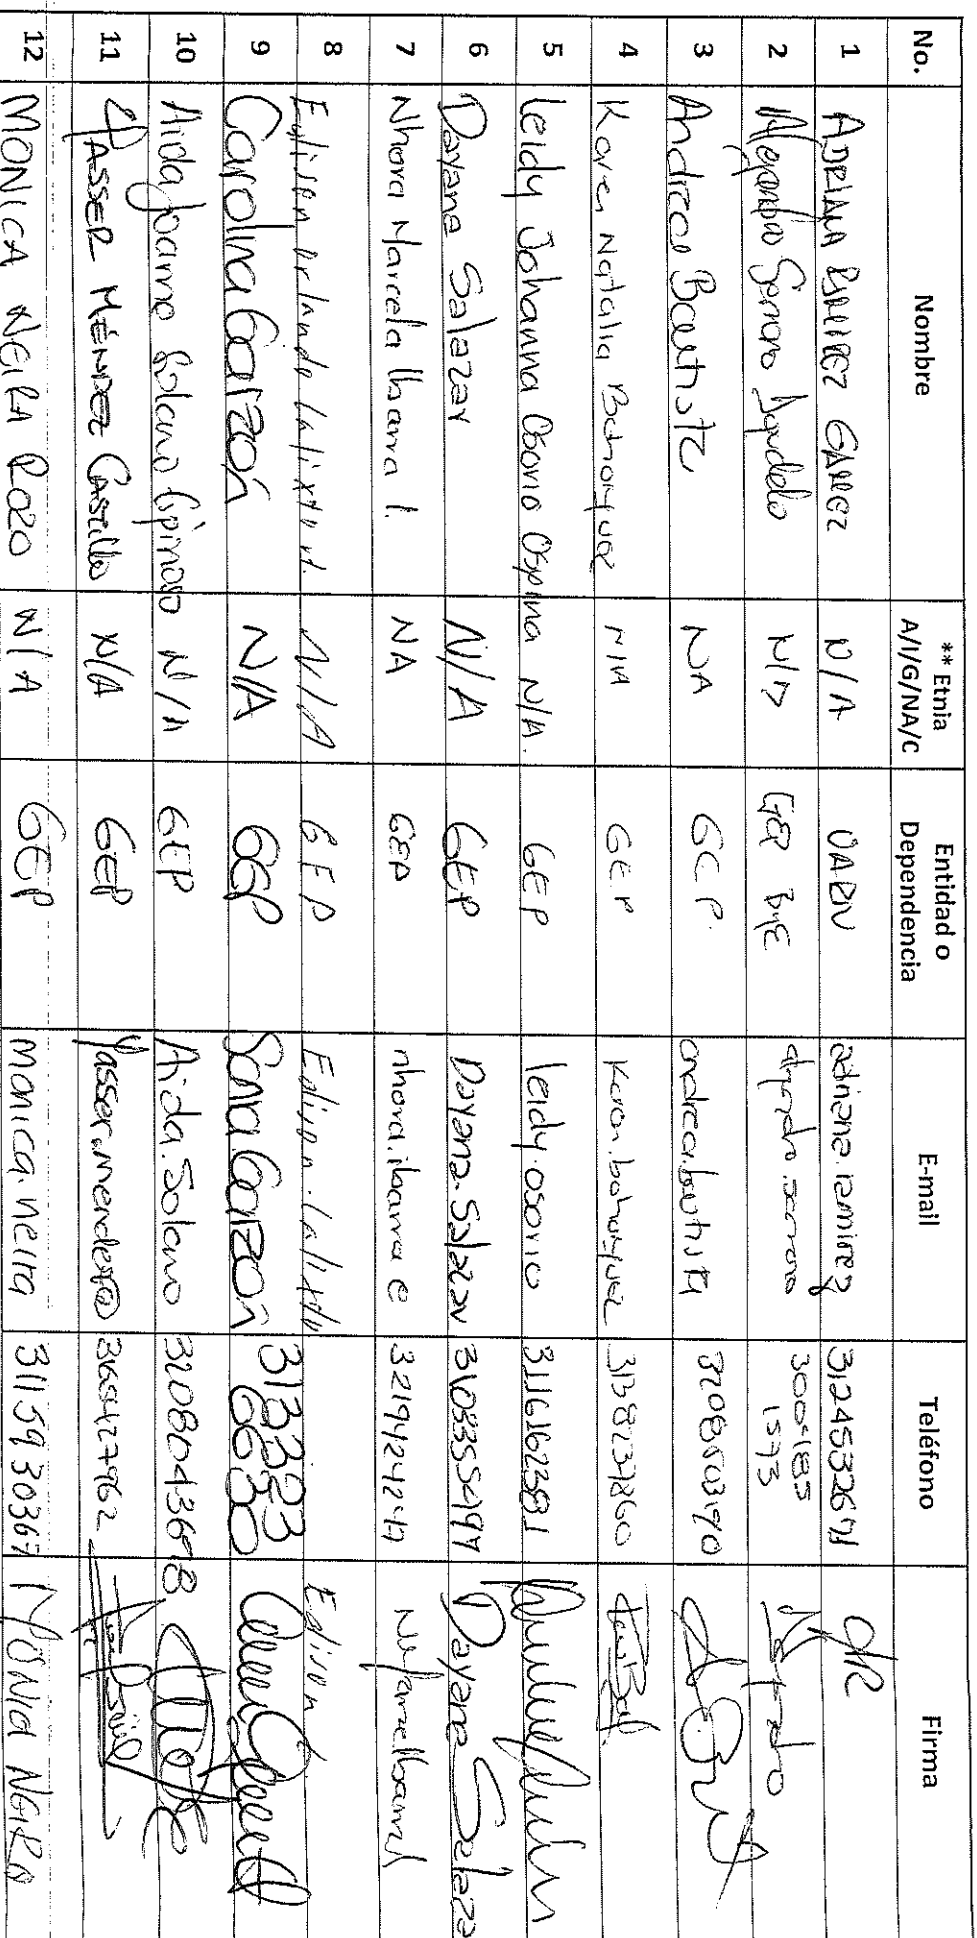 No. Nombre ** Etnia A/I/G/NA/C Entidad o Dependencia E-mail Teléfono Firma
1 ADRIANA RAMIREZ GAMEZ N/A UABN adriana.ramirez 3124532671
2 Alejandro Serrano N/A GEP alejandro.serrano 3004185 1573 Alejandro
3 Andrea Bautista NA GEP. andrea.bautista 3208503190
4 Karen Natalia Bohorquez N/A GEP Karen.bohorquez 3138237860
5 leidy Johanna Osorio Ospina N/A. GEP leidy.osorio 3116162381
6 Dayana Salazar N/A GEP Dayana.Salazar 3103355497 Dayana Salaza
7 Nhora Marcela Ibarra I. NA GEP nhora.ibarra e 3219424247
8 Edison Orlando Calixto M. N/A GEP Edison.Calixto Edison
9 Carolina Garzón N/A GEP Sara.Garzón 3132323 6630
10 Aida Joanna Solano Espinosa N/A GEP Aida.Solano 3208043698
11 YASSER MÉNDEZ CASTILLO N/A GEP Yasser.mendez@
12 MONICA NEIRA ROZO N/A GEP monica.neira 3115930367 MONICA NEIRA